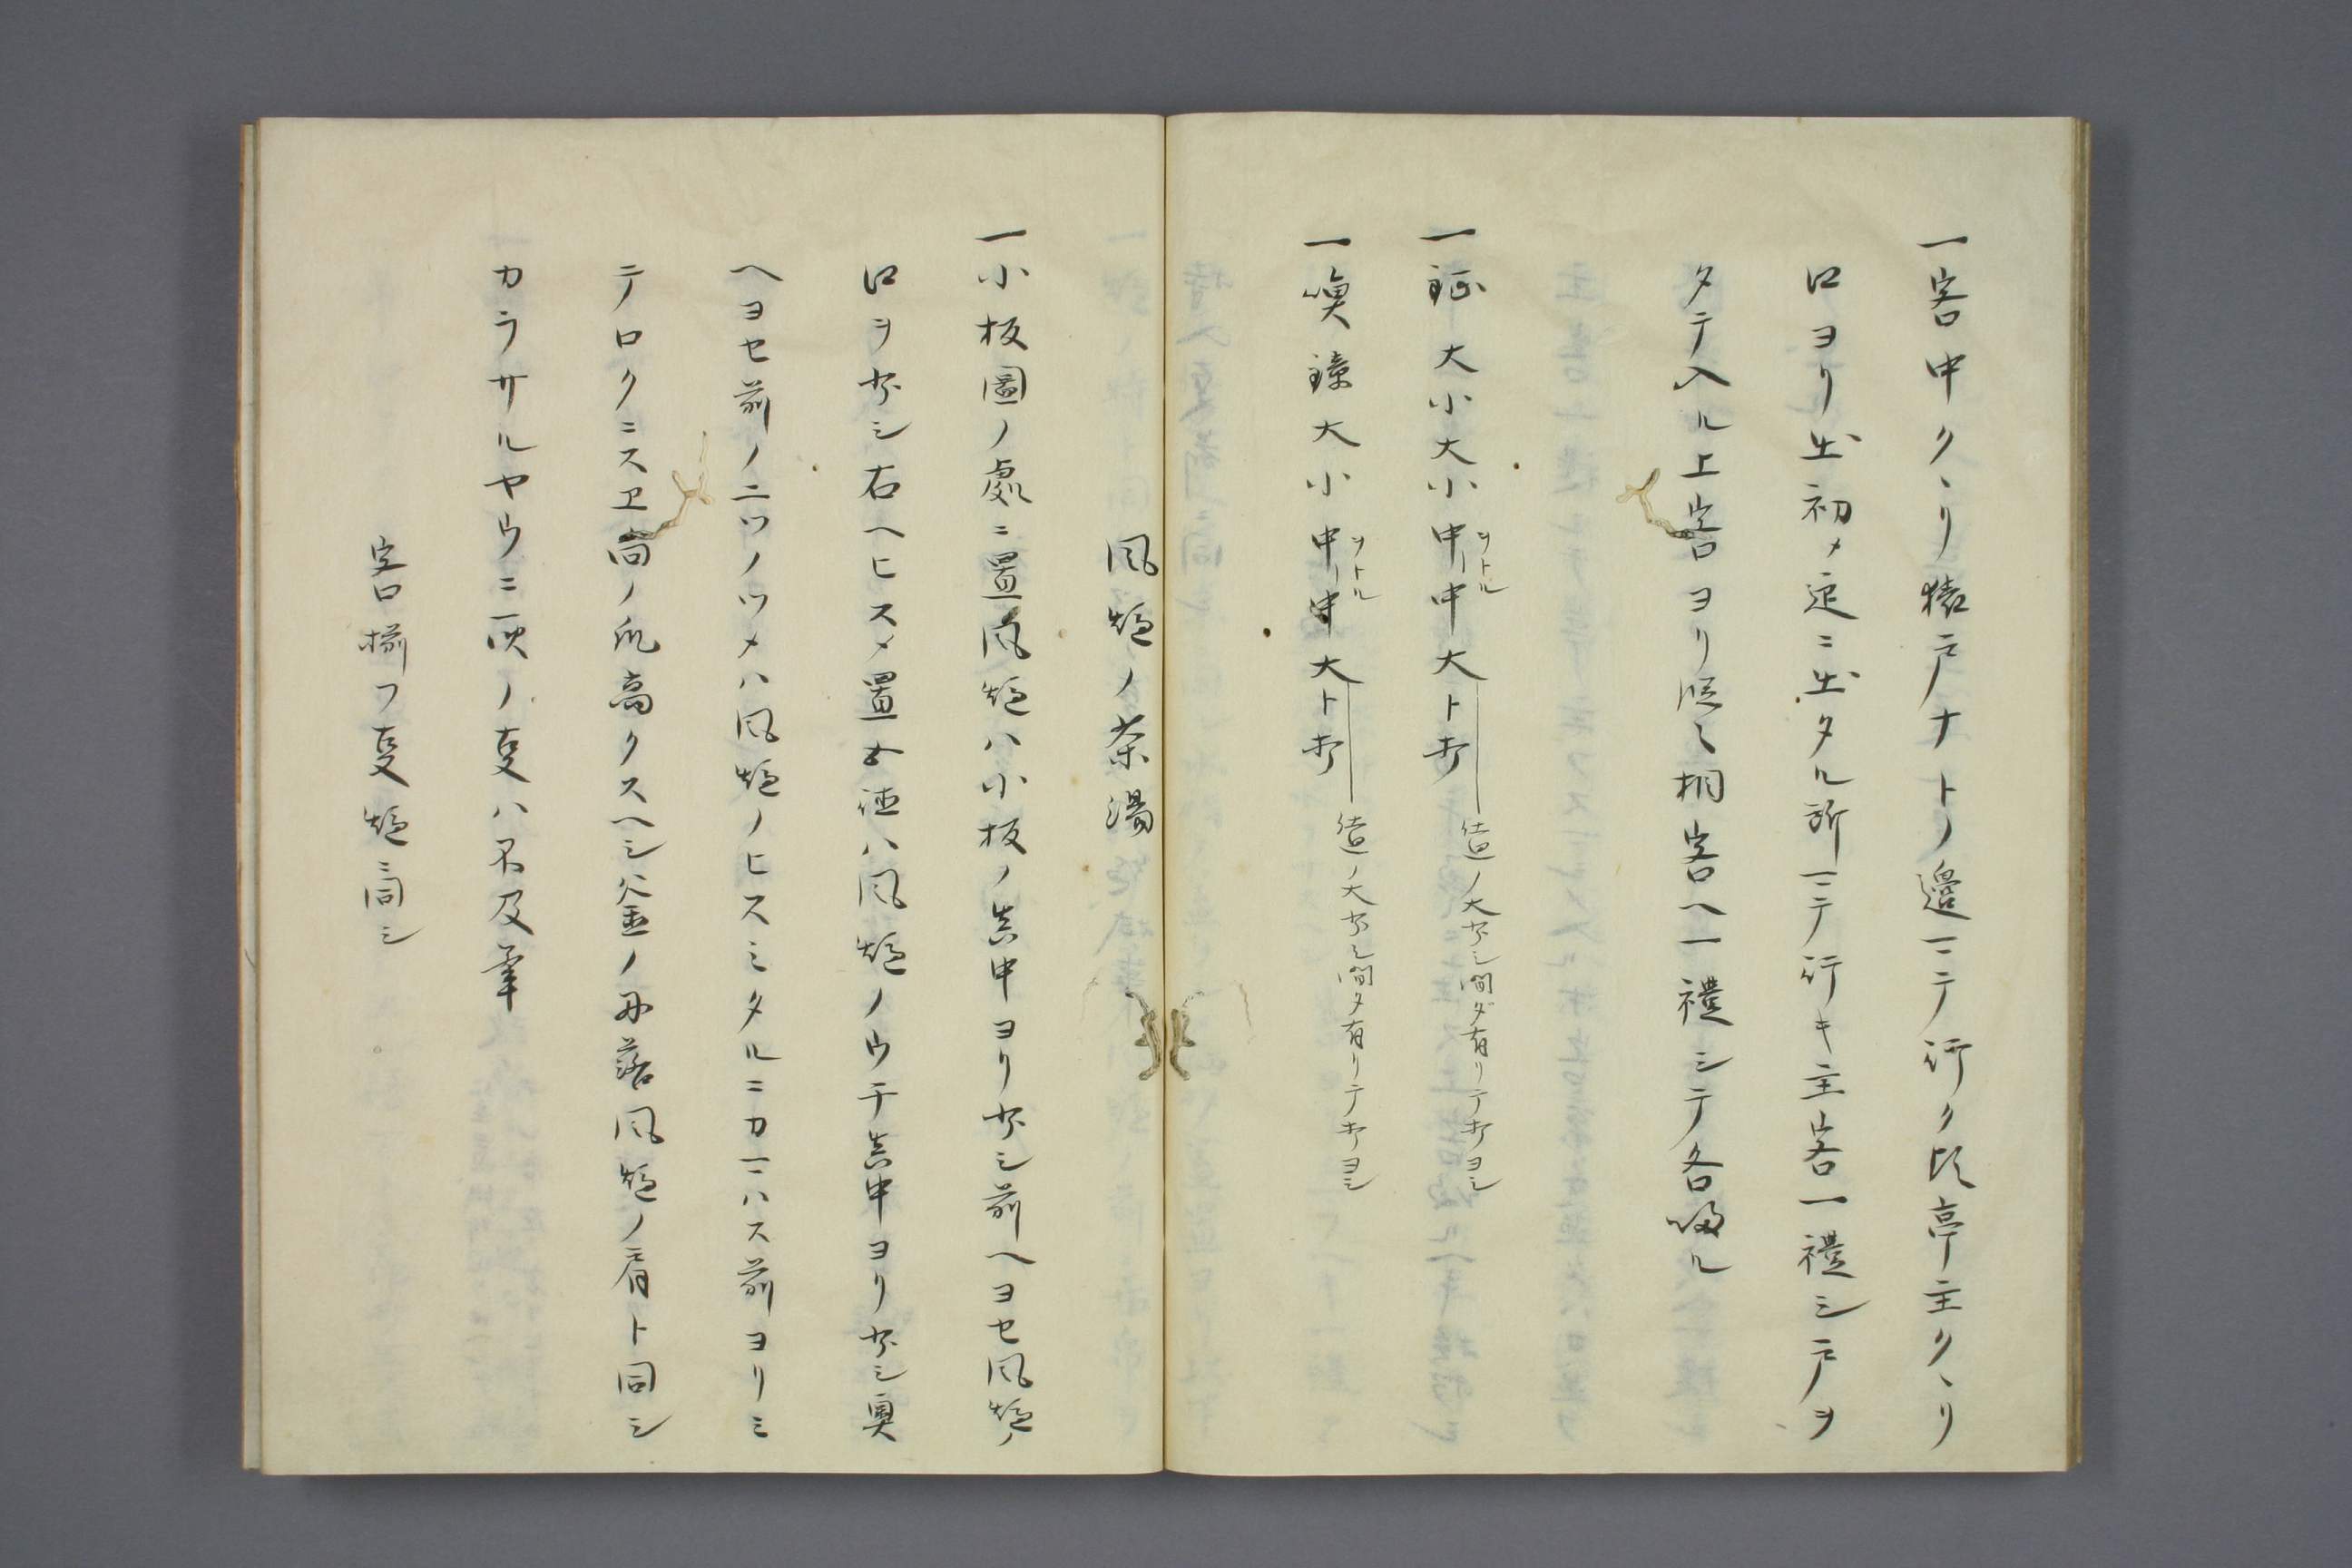 一客中クヽリ猿戸ナトノ邉ニテ行ク比亭主クヽリ
口ヨリ出初メ定ニ出タル所ニテ行キ主客一禮シ戸ヲ
タテ入ル上客ヨリ段々相客ヘ一禮シテ各帰ル
一鉦大小大小中中大ト打
ツトル
ノ大少シ間ダ有リテ打ヨシ
一喚鐘大小中中大ト打
ツトル
ノ大少シ間タ有リテ打ヨシ
風爐ノ茶湯
一小板圖ノ處ニ置風爐ハ小板ノ真中ヨリ少シ前ヘヨセ風爐ノ
口ヲ少シ右ヘヒスメ置五徳ハ風爐ノウチ真中ヨリ少シ奥
ヘヨセ前ノ二ツノツメハ風爐ノヒスミタルニカマハス前ヨリミ
テロクニスヱ向ノ爪高クスヘシ釜ノ羽落風爐ノ肩ト同シ
カラサルヤウニ灰ノ夏ハ不及筆
客揃フ夏爐ニ同シ